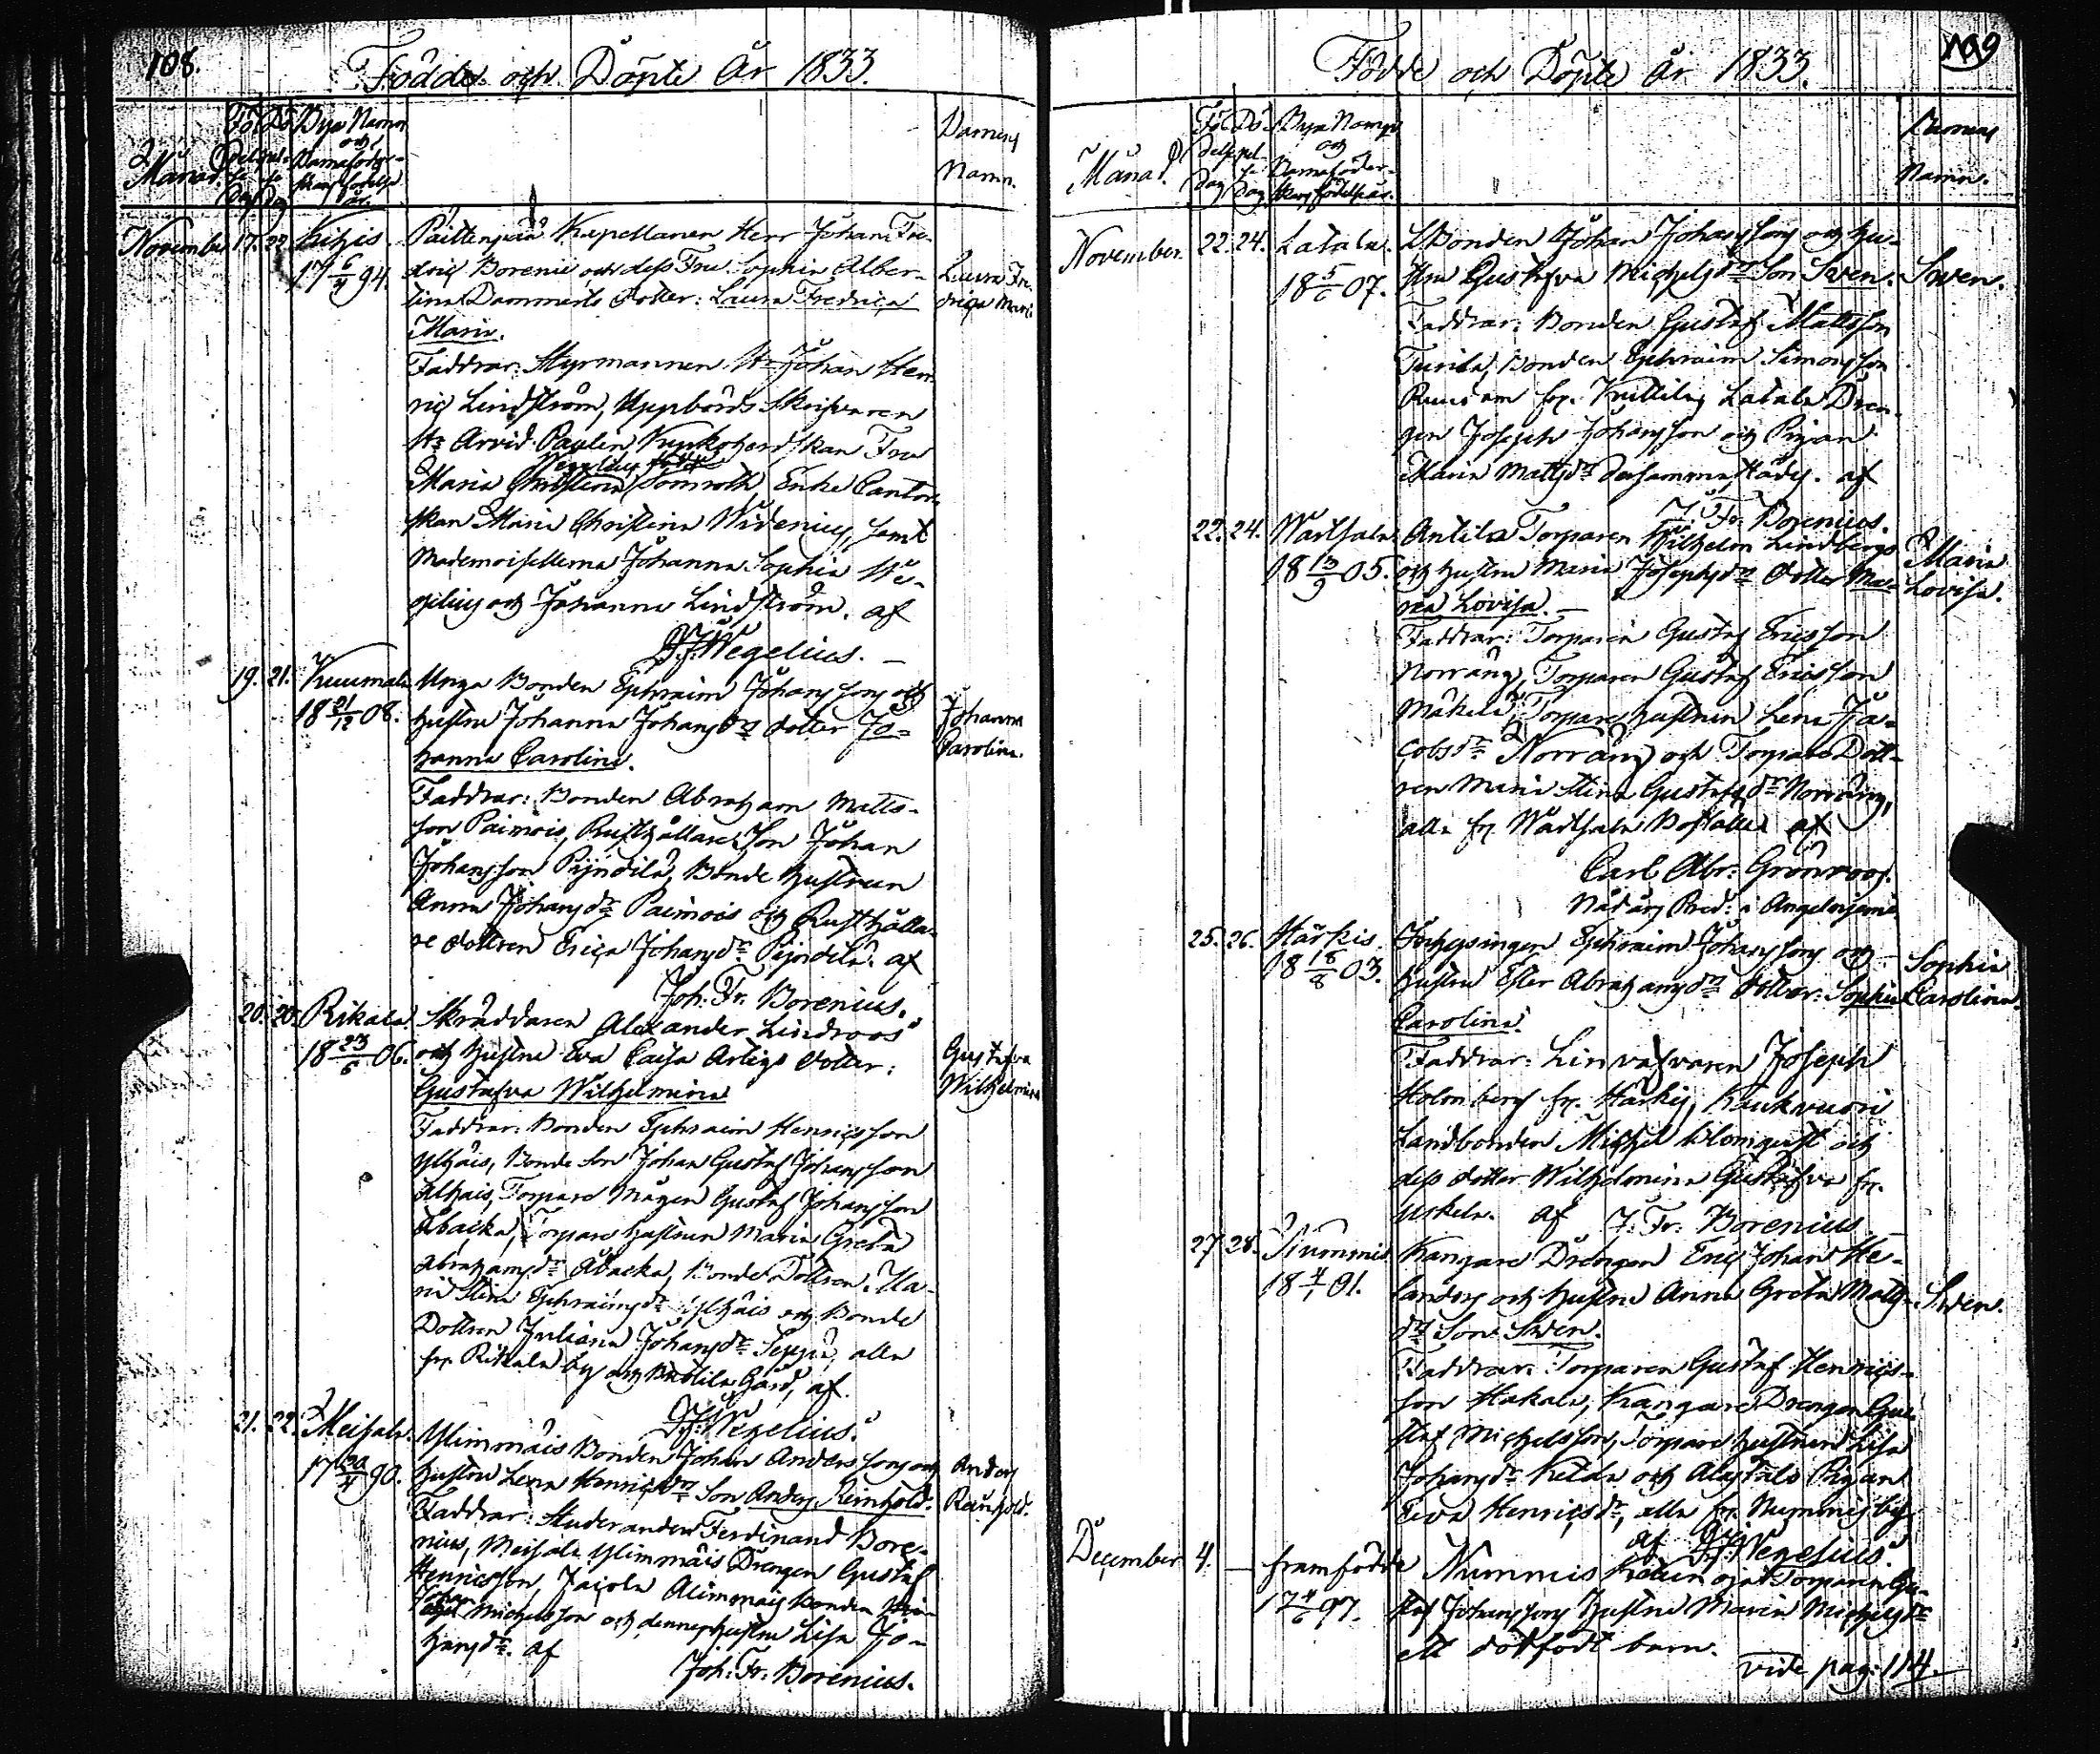 108.
Födde och Döpte År 1833.
Månad.
Födelse Dag
Döpelse Dag
Bya Namn och Barnaföderskans födelse år.
Barnens Namn.
November 17. 22. Kihis
17 6/4 94.
Kapellanen Herr Johan Fre-
dric Borenii och dess Fru Sophia Alber-
tina Dammerts Dotter: Laura Fredrica
Maria.
Laura Fre-
drica Maria
Faddrar: Styrmannen Hr Johan Hen-
ric Lindström, Uppbörds Skrifvaren
Hr Arvid Paulin, Fru
Maria Christina Enke Cantors
skan Maria Christina Widenius, samt
Mademoisellerna Johanna Sophia We-
gelius och Johanna Lindström. af
J. Wegelius.
19. 21. Kuumala
18 21/12 08.
Unga Bonden Ephraim Johansson och
hustru Johanna Johansdr dotter Jo-
hanna Carolina.
Johanna
Carolina.
Faddrar: Bonden Abraham Matts-
son Paimois, Rusthållare Son Johan
Johansson Pijndilä, Bonde hustrun
Anna Johansdr Paimois och Rusthålla-
re dottren Erica Johansdr Pijndilä. af
Joh. Fr. Borenius.
20. 20. Rikala
18 23/6 06.
Skräddaren Alexander Lindroos
och hustru Eva Caisa Artigs dotter:
Gustafva Wilhelmina
Gustafva
Wilhelmina
Faddrar: Bonden Ephraim Henricsson
Ylhäis, Bonde Son Johan Gustaf Johansson
Alhais, Torpare Mågen Gustaf Johansson
Åbacka, Torpare hustrun Maria Greta
Abrahamsdr Åbacka, Bonde Dottren Ma-
ria Stina Ephraimsdr Ylhäis och Bonde
Dottren Juliana Johansdr Seppä, alla
fr. Rikala by och Gård, af
J. Wegelius.
21. 22. Meisala.
17 30/11 90.
Ylimmäis Bonden Johan Anderssons och
hustru Lena Henricsdr Son Anders Reinhold.
Anders
Reinhold.
Faddrar: Studeranden Ferdinand Bore-
nius, Meisala Ylimmäis Drengen Gustaf
Henricsson, Jaiola Alimmais Bonden
Johan Michelsson och dennes hustru Lisa Jo-
hansdr. af
Joh: Fr. Borenius.
109
Födde och Döpte År 1833.
Månad.
Födelse Dag
Döpelse Dag
Bya Namn och Barnaföder-
skans födelseår.
Barnens
Namn.
November. 22. 24. Latala.
18 5/6 07.
Bonden Johan Johanssons och hu-
stru Gustafva Michelsdr Son Sven.
Sven.
Faddrar: Bonden Gustaf Mattsson
Bonden Ephraim Simonsson
fr. Latala Dren-
gen Joseph Johansson och Pigan
Maria Mattsdr dersammastädes. af
J. Fr. Borenius.
22. 24. Wartsala
18 13/9 05.
Antila Torparen Wilhelm Lindbergs
och hustru Maria Josephsdr dotter Ma-
ria Lovisa.
Maria
Lovisa.
Faddrar: Torparen Gustaf Ericsson
Norräng, Torparen Gustaf Ericsson
Mäkelä, Torpare hustrun Lena Ja-
cobsdr Norräng och Torpare Dött-
ren Maria Stina Gustafsdr Norräng,
alla fr. Wartsala Bostället af
Carl Abr: Grönroos.
Nådårs Pred: i Angelniemi
25. 26. Härkis
18 18/8 03.
Inhysingen Ephraim Johanssons och
hustru Ester Abrahamsdr dotter: Sophia
Carolina.
Sophia
Carolina.
Faddrar: Linvafvaren Joseph
Holmberg fr. Härkis, Kaukvuori
Landbonden Michel Blomqvist och
dess dotter Wilhelmina Gustafva fr.
Uskela. af J. Fr. Borenius
27. 28. Nummis
18 4/1 01.
Kangare Drengen Eric Johan He-
landers och hustru Anna Greta Matts-
dr Son Sven.
Sven.
Faddrar: Torparen Gustaf Henrics-
son Hakala, Kangare Drengen Gu-
staf Michelsson, Torpare hustrun Lisa
Johansdr Ketala och Alastalo Pigan
Eva Henricsdr, alla fr. Nummis by
af J. Wegelius.
December 4. — framfödde
17 4/6 97.
Nummis Torparen Gu-
staf Johanssons Hustru Maria Michelsdr
ett dödfödt barn.
vide pag: 114.